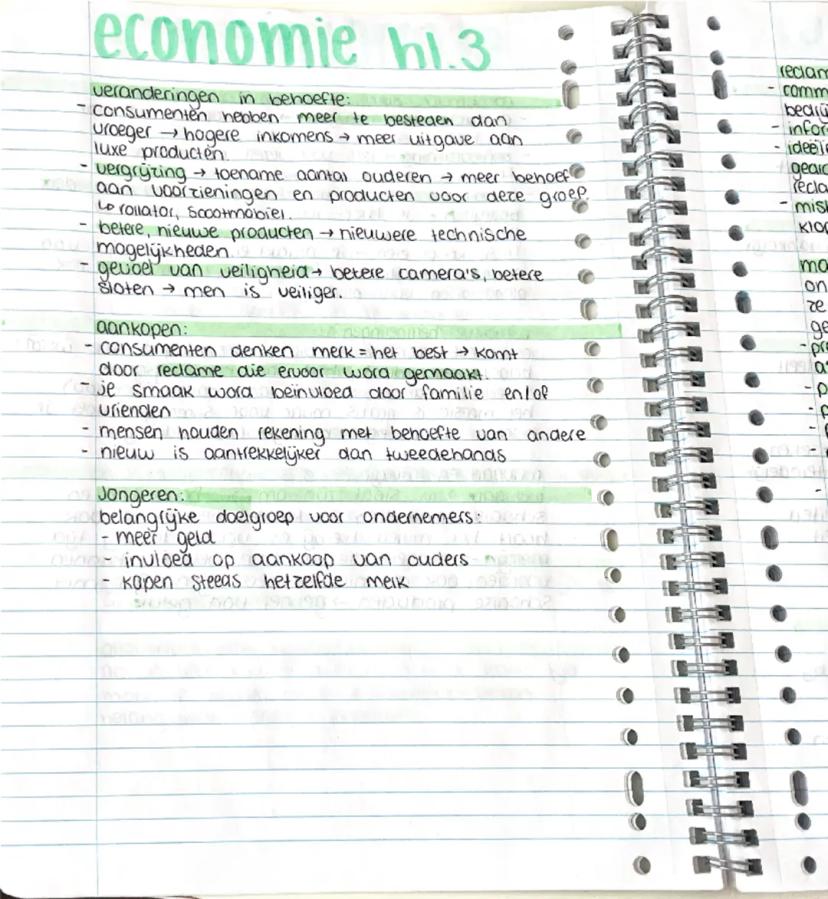 economie hl.3
veranderingen in behoefte:
- consumenten hebben meer te besteden dan
vroeger → hogere inkomens → meer uitgave aan
luxe producten.
- vergrijzing → toename aantal ouderen → meer behoef
aan voorzieningen en producten voor deze groep.
↳ rollator, scootmobiel.
- betere, nieuwe producten → nieuwere technische
mogelijkheden.
- gevoel van veiligheid → betere camera's, betere
sloten → men is veiliger.
aankopen:
- consumenten denken merk = het best → komt
door reclame die ervoor word gemaakt.
- je smaak word beïnvloed door familie en/of
vrienden
- mensen houden rekening met behoefte van andere
- nieuw is aantrekkelijker dan tweedehands
Jongeren:
belangrijke doelgroep voor ondernemers:
- meer geld
- invloed op aankoop van ouders
- kopen steeds hetzelfde merk
reclam
- comm
bedrij
- infor
- ideële
recla
- mis
klo
ma
on
ze
ge
- pr
- p
- p